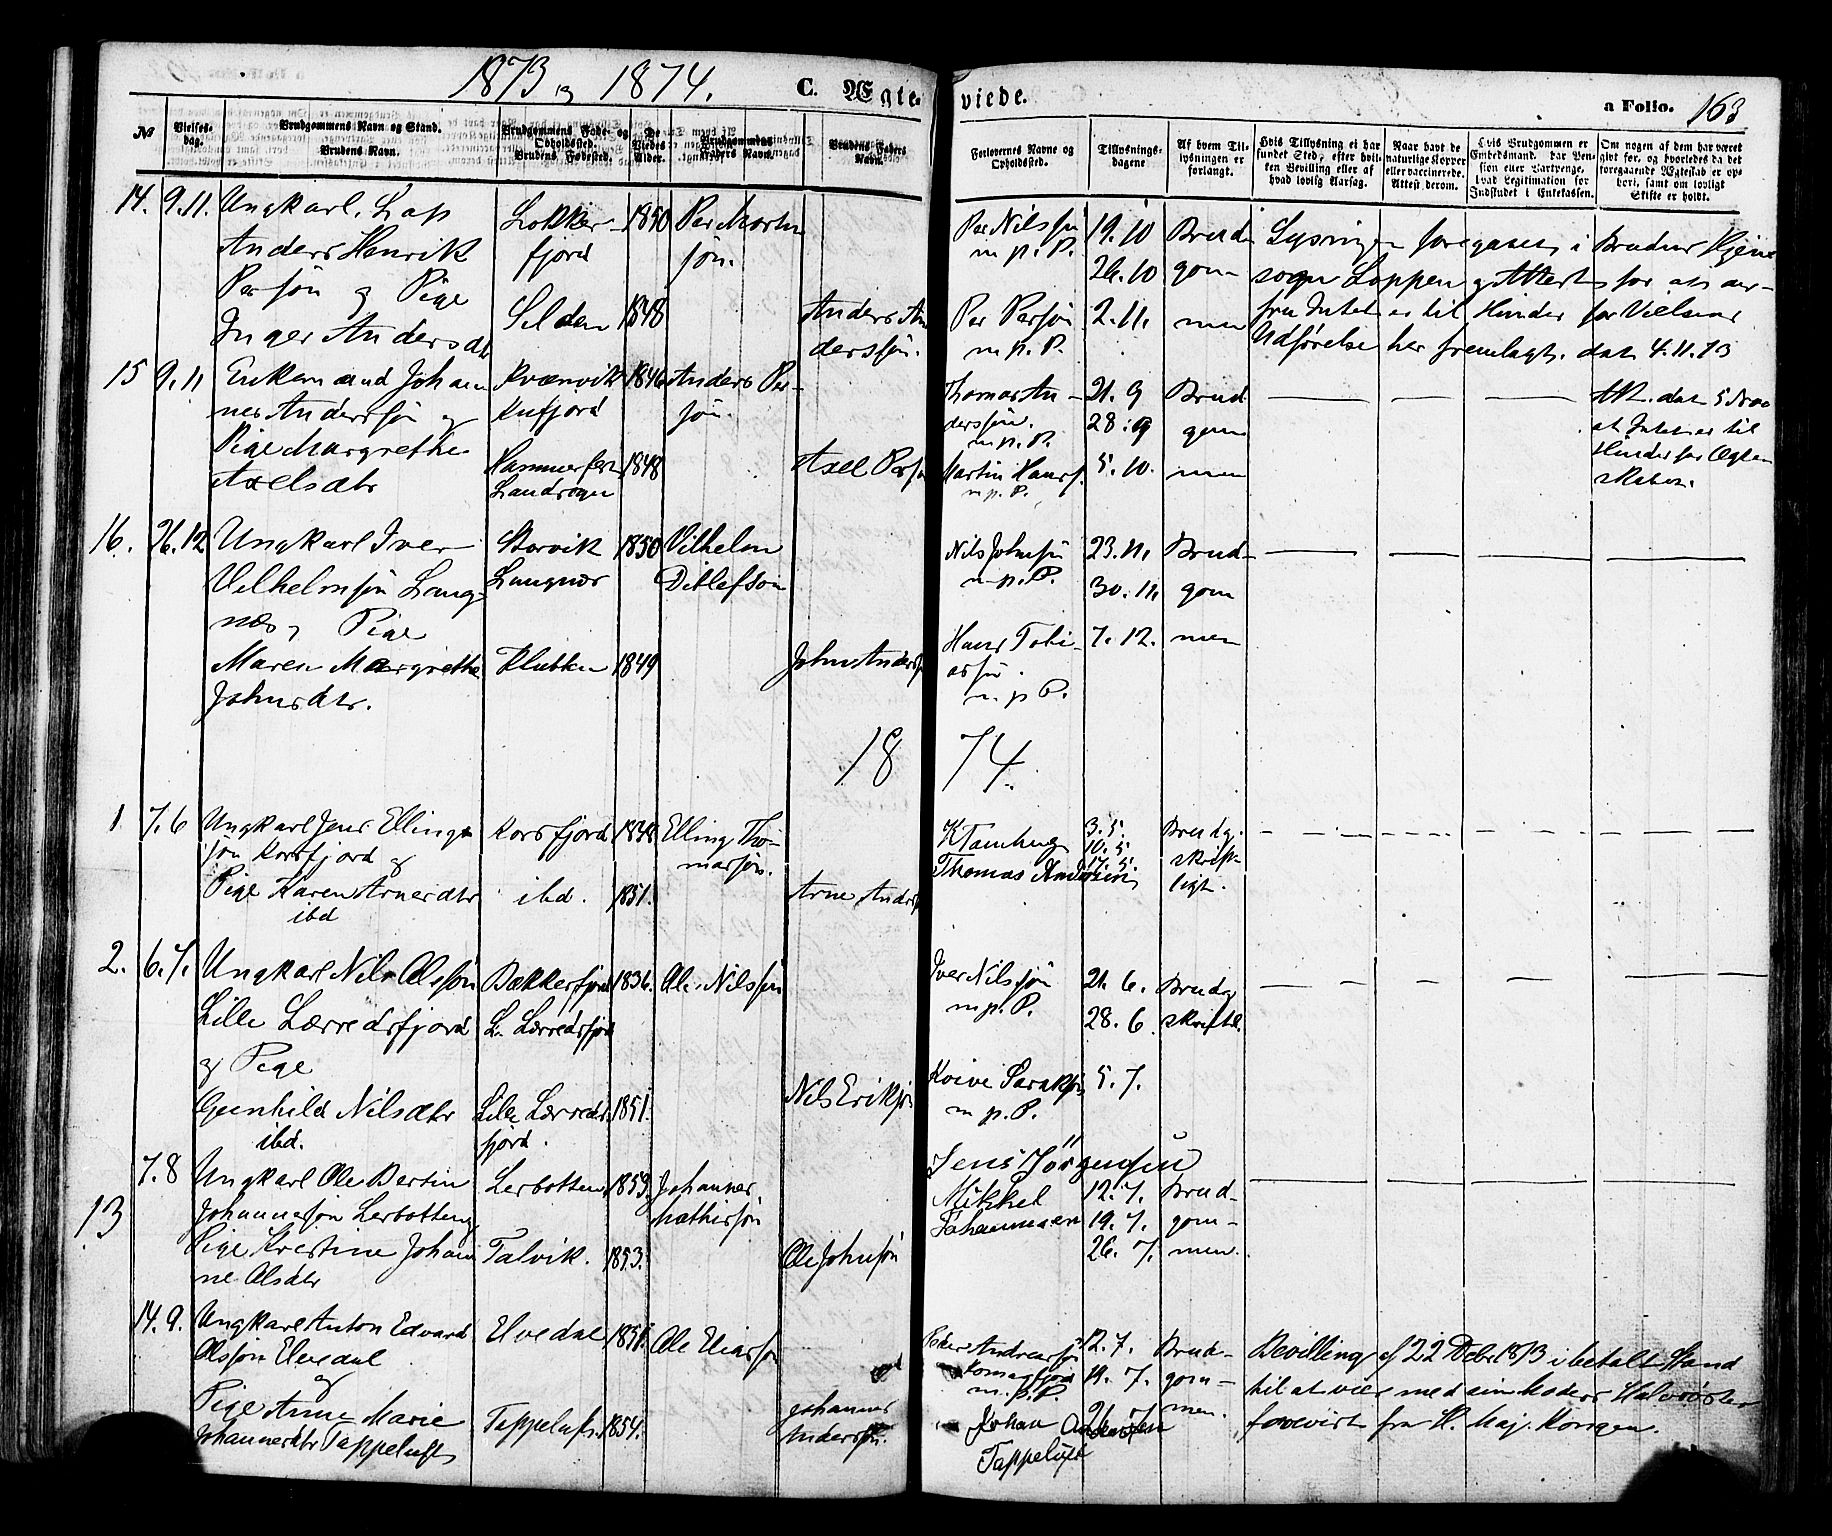 1873 og 1874.
C. Ægte- viede.
a Folio. 163
No
Vielses-
dag.
Brudgommens Navn og Stand.
Brudens Navn.
Brudgommens Føde- og
Opholdssted.
Brudens Fødested.
De
Viedes
Alder.
Brudgommens
Faders Navn.
Brudens Faders
Navn.
Forlovernes Navne og
Opholdssted.
Tillysnings-
dagene
Af hvem Til-
lysningen er
forlangt.
Hvis Tillysning ei har
fundet Sted, efter hvil-
ken Bevilling eller af
hvad lovlig Aarsag.
Naar havt de
naturlige Kopper
eller vaccinerede.
Attest derom.
Hvis Brudgommen er
Embedsmand, har Pen-
sion eller Vartpenge,
hvad Legitimation for
Indskudet i Enkekassen.
Om nogen af dem har været
givt før, og hvorledes da det
foregaaende Ægteskab er op-
hørt, samt om lovligt
Skifte er holdt.
14. 9.11. Ungkarl. Lap
Anders Henrik
Persøn og Pige
Inger Andersdtr
Lokker-
fjord
Selden
1850
1848
Per Morten
søn.
Anders An
derssøn.
Per Nilssøn
m. p. P.
Per Persøn
m. p. P.
19. 10
26. 10
2. 11.
Brud
gom-
men
Lysningen foregaaet i Brudens Hjem
sogn Loppen og Attest for at der-
fra Intet er til Hinder for Vielsens
Udførelse her fremlagt. dat 4.11.73
15 9.11 Enkemand Johan
nes Anderssøn og
Pige Margrethe
Axelsdtr
Kvænvik
Rufjord
Hammerfest
Landsogn
1846
1848
Anders Per-
søn.
Axel Persøn
Thomas An-
derssøn.
m. p. P.
Martin Hanss.
m. p. P.
21. 9
28. 9
5. 10.
Brud
gom
men
Att. dat 5 Nov
at Intet er til
Hinder for Ægte
skabet.
16. 26.12 Ungkarl Iver
Vilhelmsøn Lang-
næs, Pige
Maren Margrethe
Johnsdtr.
Storvik
Langnæs
Klubben
1850
1849
Vilhelm
Ditlefson
John Anderss
Nils Johnsøn
m. p. P.
Hans Tobi-
assøn.
m. p. P.
23. 11.
30. 11.
7. 12.
Brud-
gom
men
18 74.
1 7.6 Ungkarl Jens Ellings
søn Korsfjord og
Pige Karen Arnesdtr
ibd
Korsfjord
ibd.
1848
1851.
Elling Tho-
massøn.
Arne Anders
Thomas Andersen
3. 5.
10. 5
17. 5.
Brudg.
skrift-
ligt.
2. 6.7. Ungkarl Nils Olssøn
Lille Lærredsfjord
og Pige
Gunhild Nilsdtr
ibd.
Bækkerfjord
L. Lærredsfjord
Lille Lærreds
fjord.
1836.
1851.
Ole Nilssøn
Nils Erikssøn
Iver Nilssøn
m. p. P.
m. p. P.
21. 6.
28. 6.
5. 7.
Brudg
skriftl.
13 7.8 Ungkarl Ole Bertin
Johannesøn Lerbotten og
Pige Kristine Johan
ne Olsdtr
Lerbotten
Talvik.
1853.
1853.
Johannes
Mathissøn
Ole Johnsøn
Jens Jörgensen
Mikkel
Johannesen
12. 7.
19. 7.
26. 7.
Brud-
gom-
men.
14. 9. Ungkarl Anton Edvard
Olssøn Elvedal
og
Pige Anne Marie
Johannesdtr Tappeluft
Elvedal
Tappeluft.
1851.
1854.
Ole Eliassøn
Johannes
Anderssøn.
Peder Andreassøn
Komagfjord
m. p. P.
Johan Andersen
Tappeluft
12. 7.
19. 7.
Brud-
gom-
men.
Bevilling af 22 Debr 1873 i betalt Stand
til at vies med sin Moders Halvsøster
forevist fra H. Maj. Kongen.